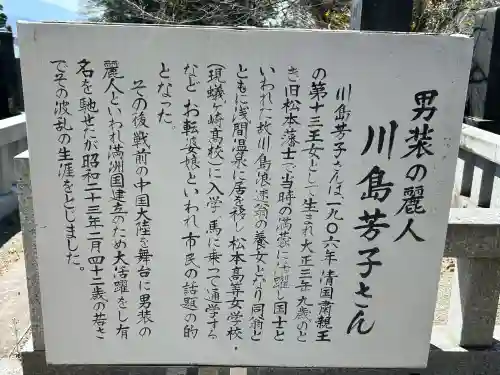 男装の麗人
川島芳子さん
川島芳子さんは、一九〇六年清国粛親王
の第十三王女として生まれ大正三年九歳のと
き旧松本藩士で当時の満蒙に活躍し国士と
いわれた故川島浪速翁の養女となり同翁と
ともに浅間温泉に居を移し松本高等女学校
(現蟻ヶ崎高校)に入学、馬に乗って通学する
など、お転婆娘といわれ市民の話題の的
となった。
その後戦前の中国大陸を舞台に男装の
麗人といわれ満洲国建立のため大活躍をし有
名を馳せたが昭和二十三年二月四十二歳の若さ
でその波乱の生涯をとじました。